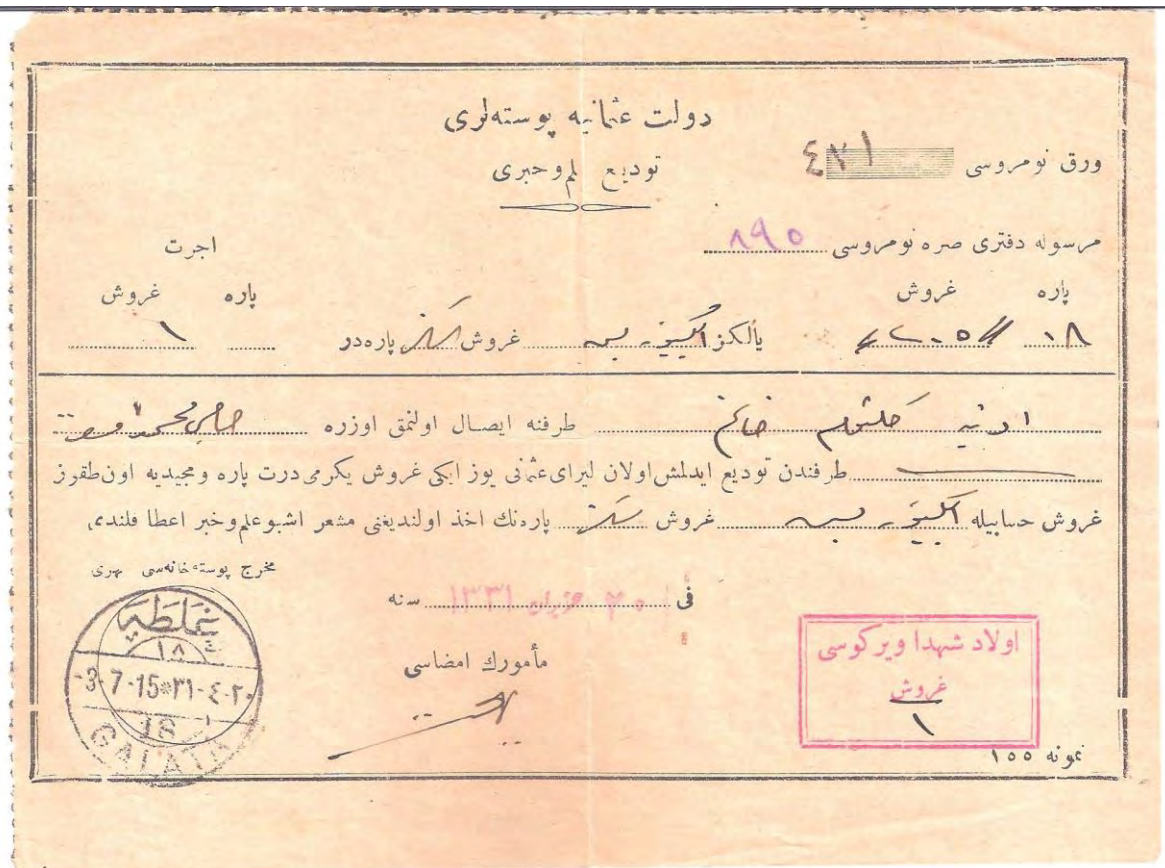 دولت عثمانیه پوسته‌لری
ورق نومروسی ٤٢١
تودیع علم و خبری
مرسوله دفتری صره نومروسی ٨٩٥
اجرت
پاره غروش
پاره غروش
یالکز غروش پاره‌در
١
خانم طرفنه ایصال اولنمق اوزره حاجی محمد
طرفندن تودیع ایدلمش اولان لیرای عثمانی یوز ایکی غروش یکرمی درت پاره ومجیدیه اون طقوز
غروش حسابیله غروش پاره‌نك اخذ اولندیغنی مشعر اشبو علم وخبر اعطا قلندی
مخرج پوسته‌خانه‌سی مهری
فی ٢٠ حزیران ١٣٣١ سنه
مأمورك امضاسی
غلطه
١٨
3-7-15*٣١-٤-٢٠
18
GALATA
اولاد شهدا ویرکوسی
غروش
١
نمونه ١٥٥